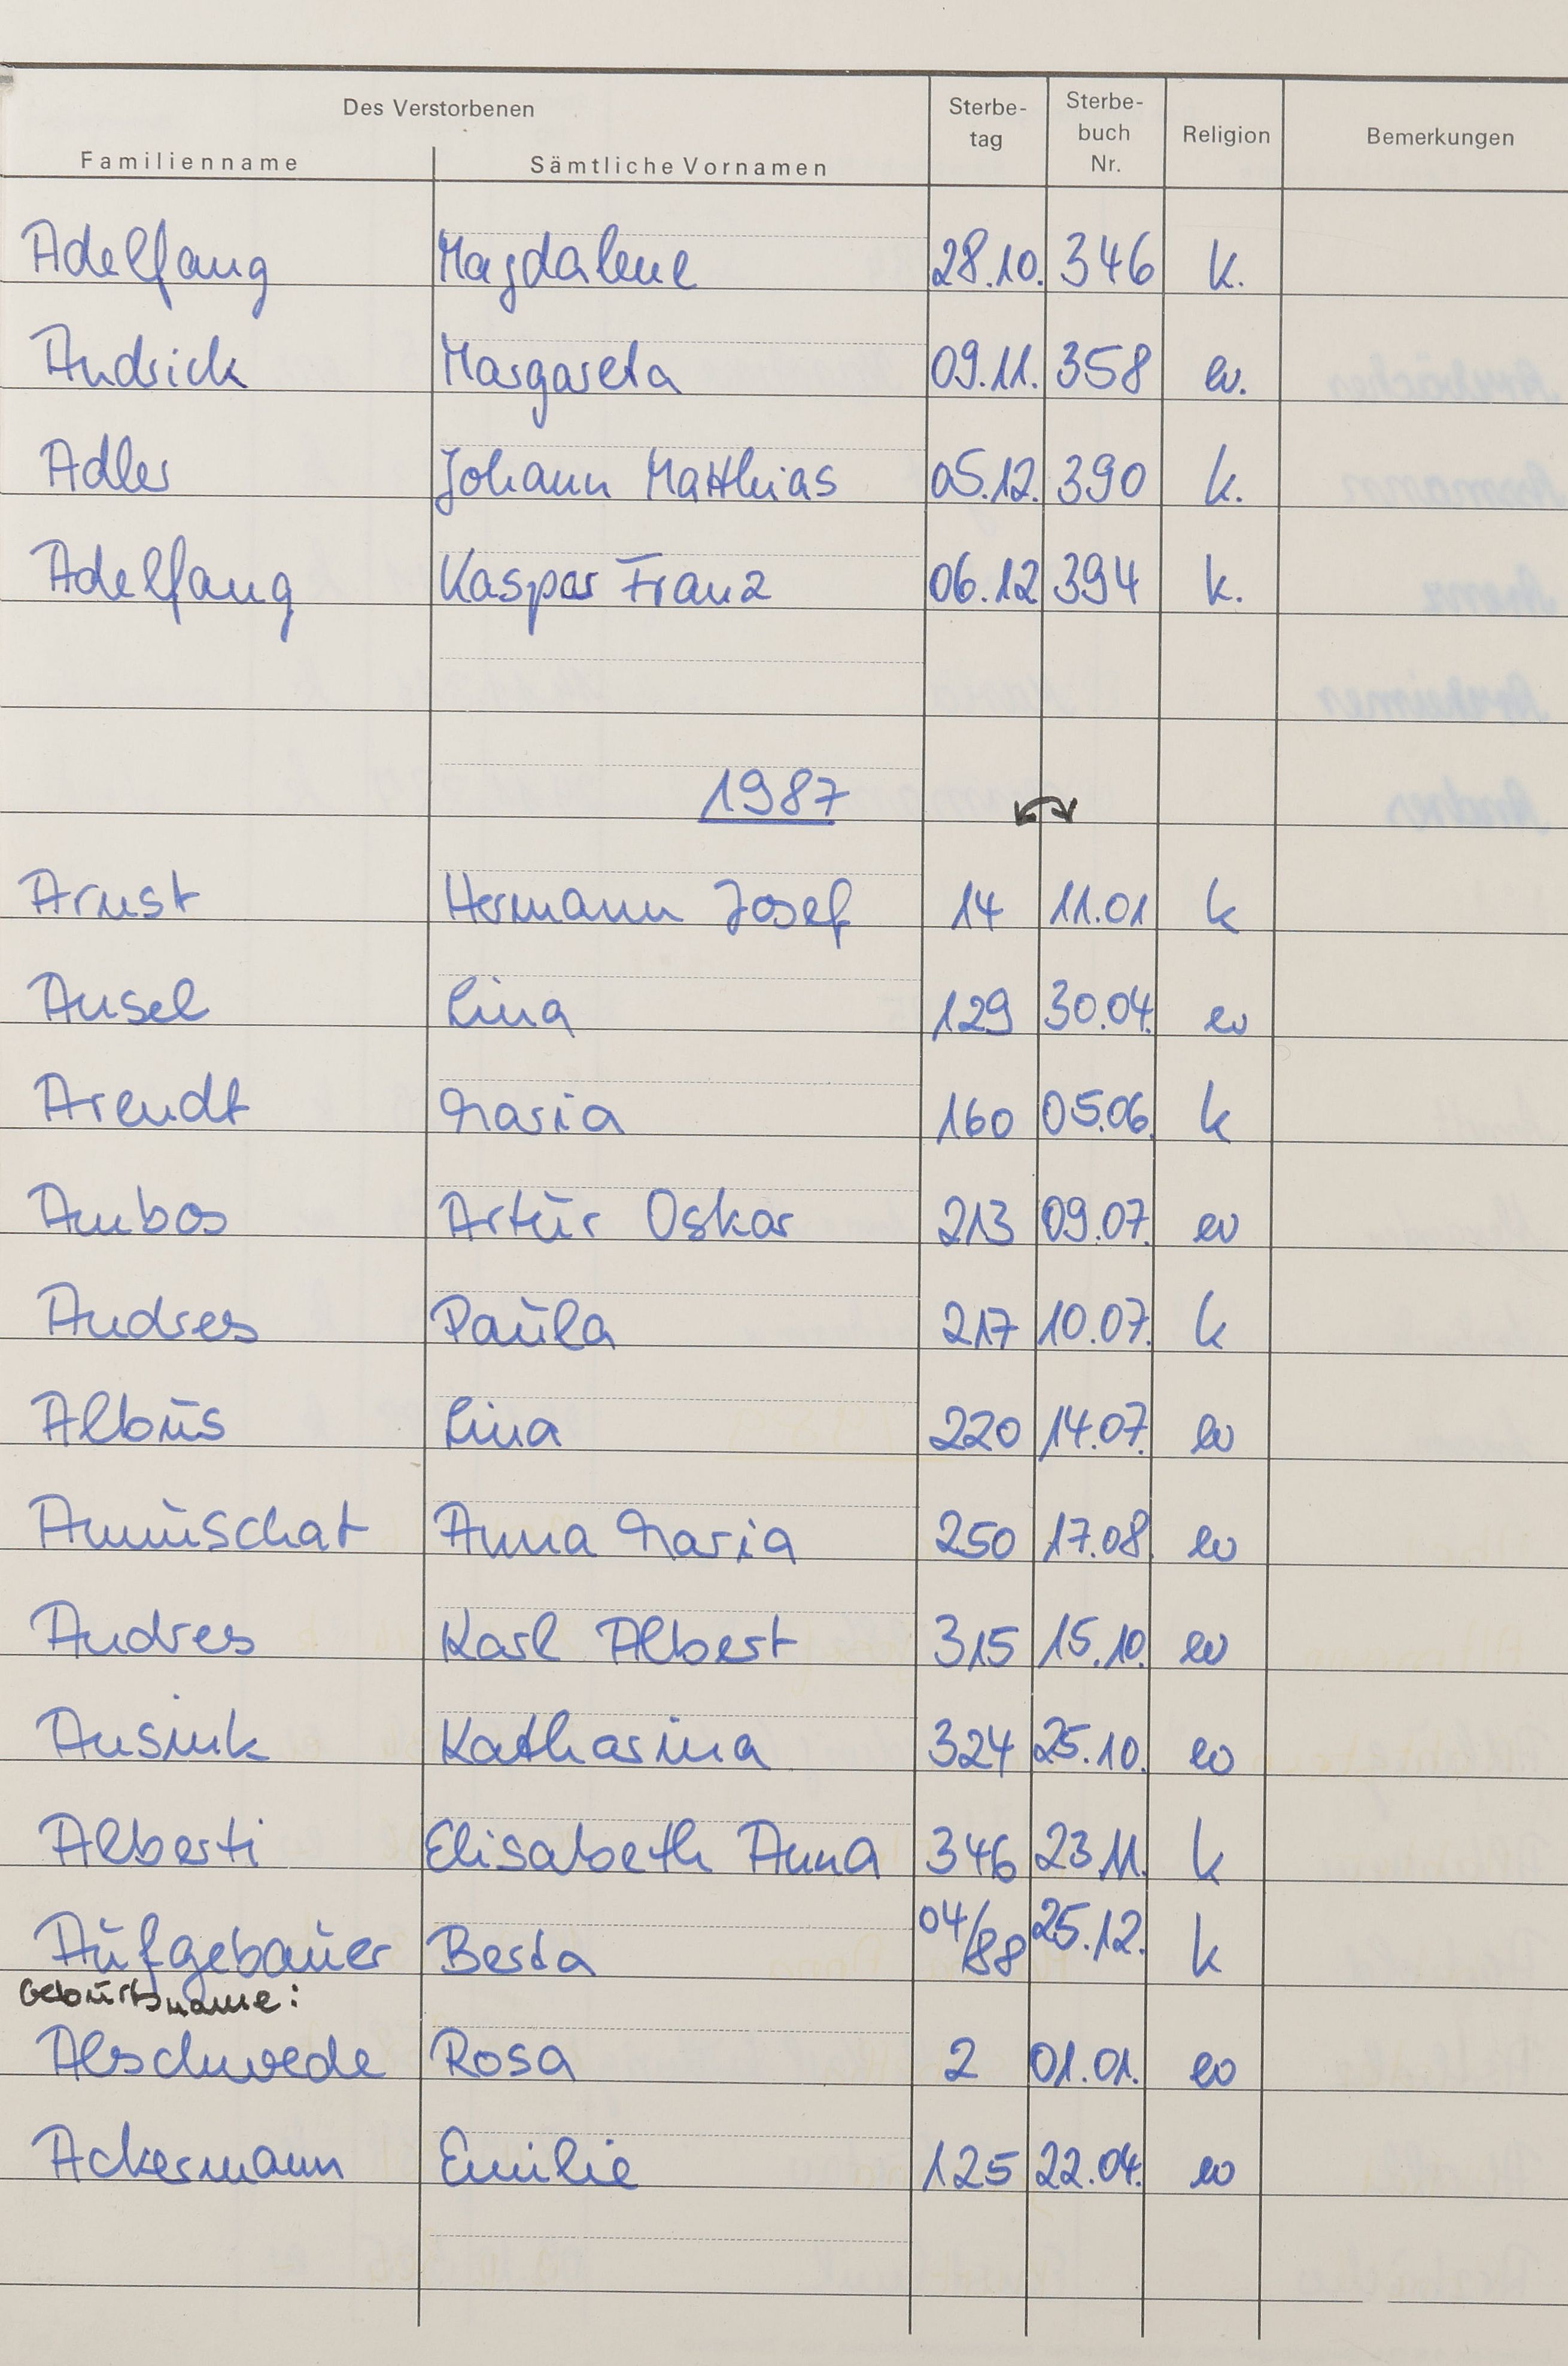 Des Verstorbenen Sterbe- Sterbe-
tag buch Religion Bemerkungen
Familienname Sämtliche Vornamen Nr.
Adelfang Magdalene 28.10. 346 k.
Andrick Margareta 09.11. 358 ev.
Adler Johann Matthias 05.12. 390 k.
Adelfang Kaspar Franz 06.12 394 k.
1987
Arnst Hermann Josef 14 11.01 k
Ansel Lina 129 30.04. ev
Arendt Maria 160 05.06. k
Ambos Artur Oskar 213 09.07. ev
Andres Paula 217 10.07. k
Albus Lina 220 14.07. ev
Annuschat Anna Maria 250 17.08. ev
Andres Karl Albert 315 15.10. ev
Ansink Katharina 324 25.10. ev
Alberti Elisabeth Anna 346 23.11. k
Aufgebauer Berta 04/88 25.12. k
Geburtsname:
Alschwede Rosa 2 01.01. ev
Ackermann Emilie 125 22.04. ev